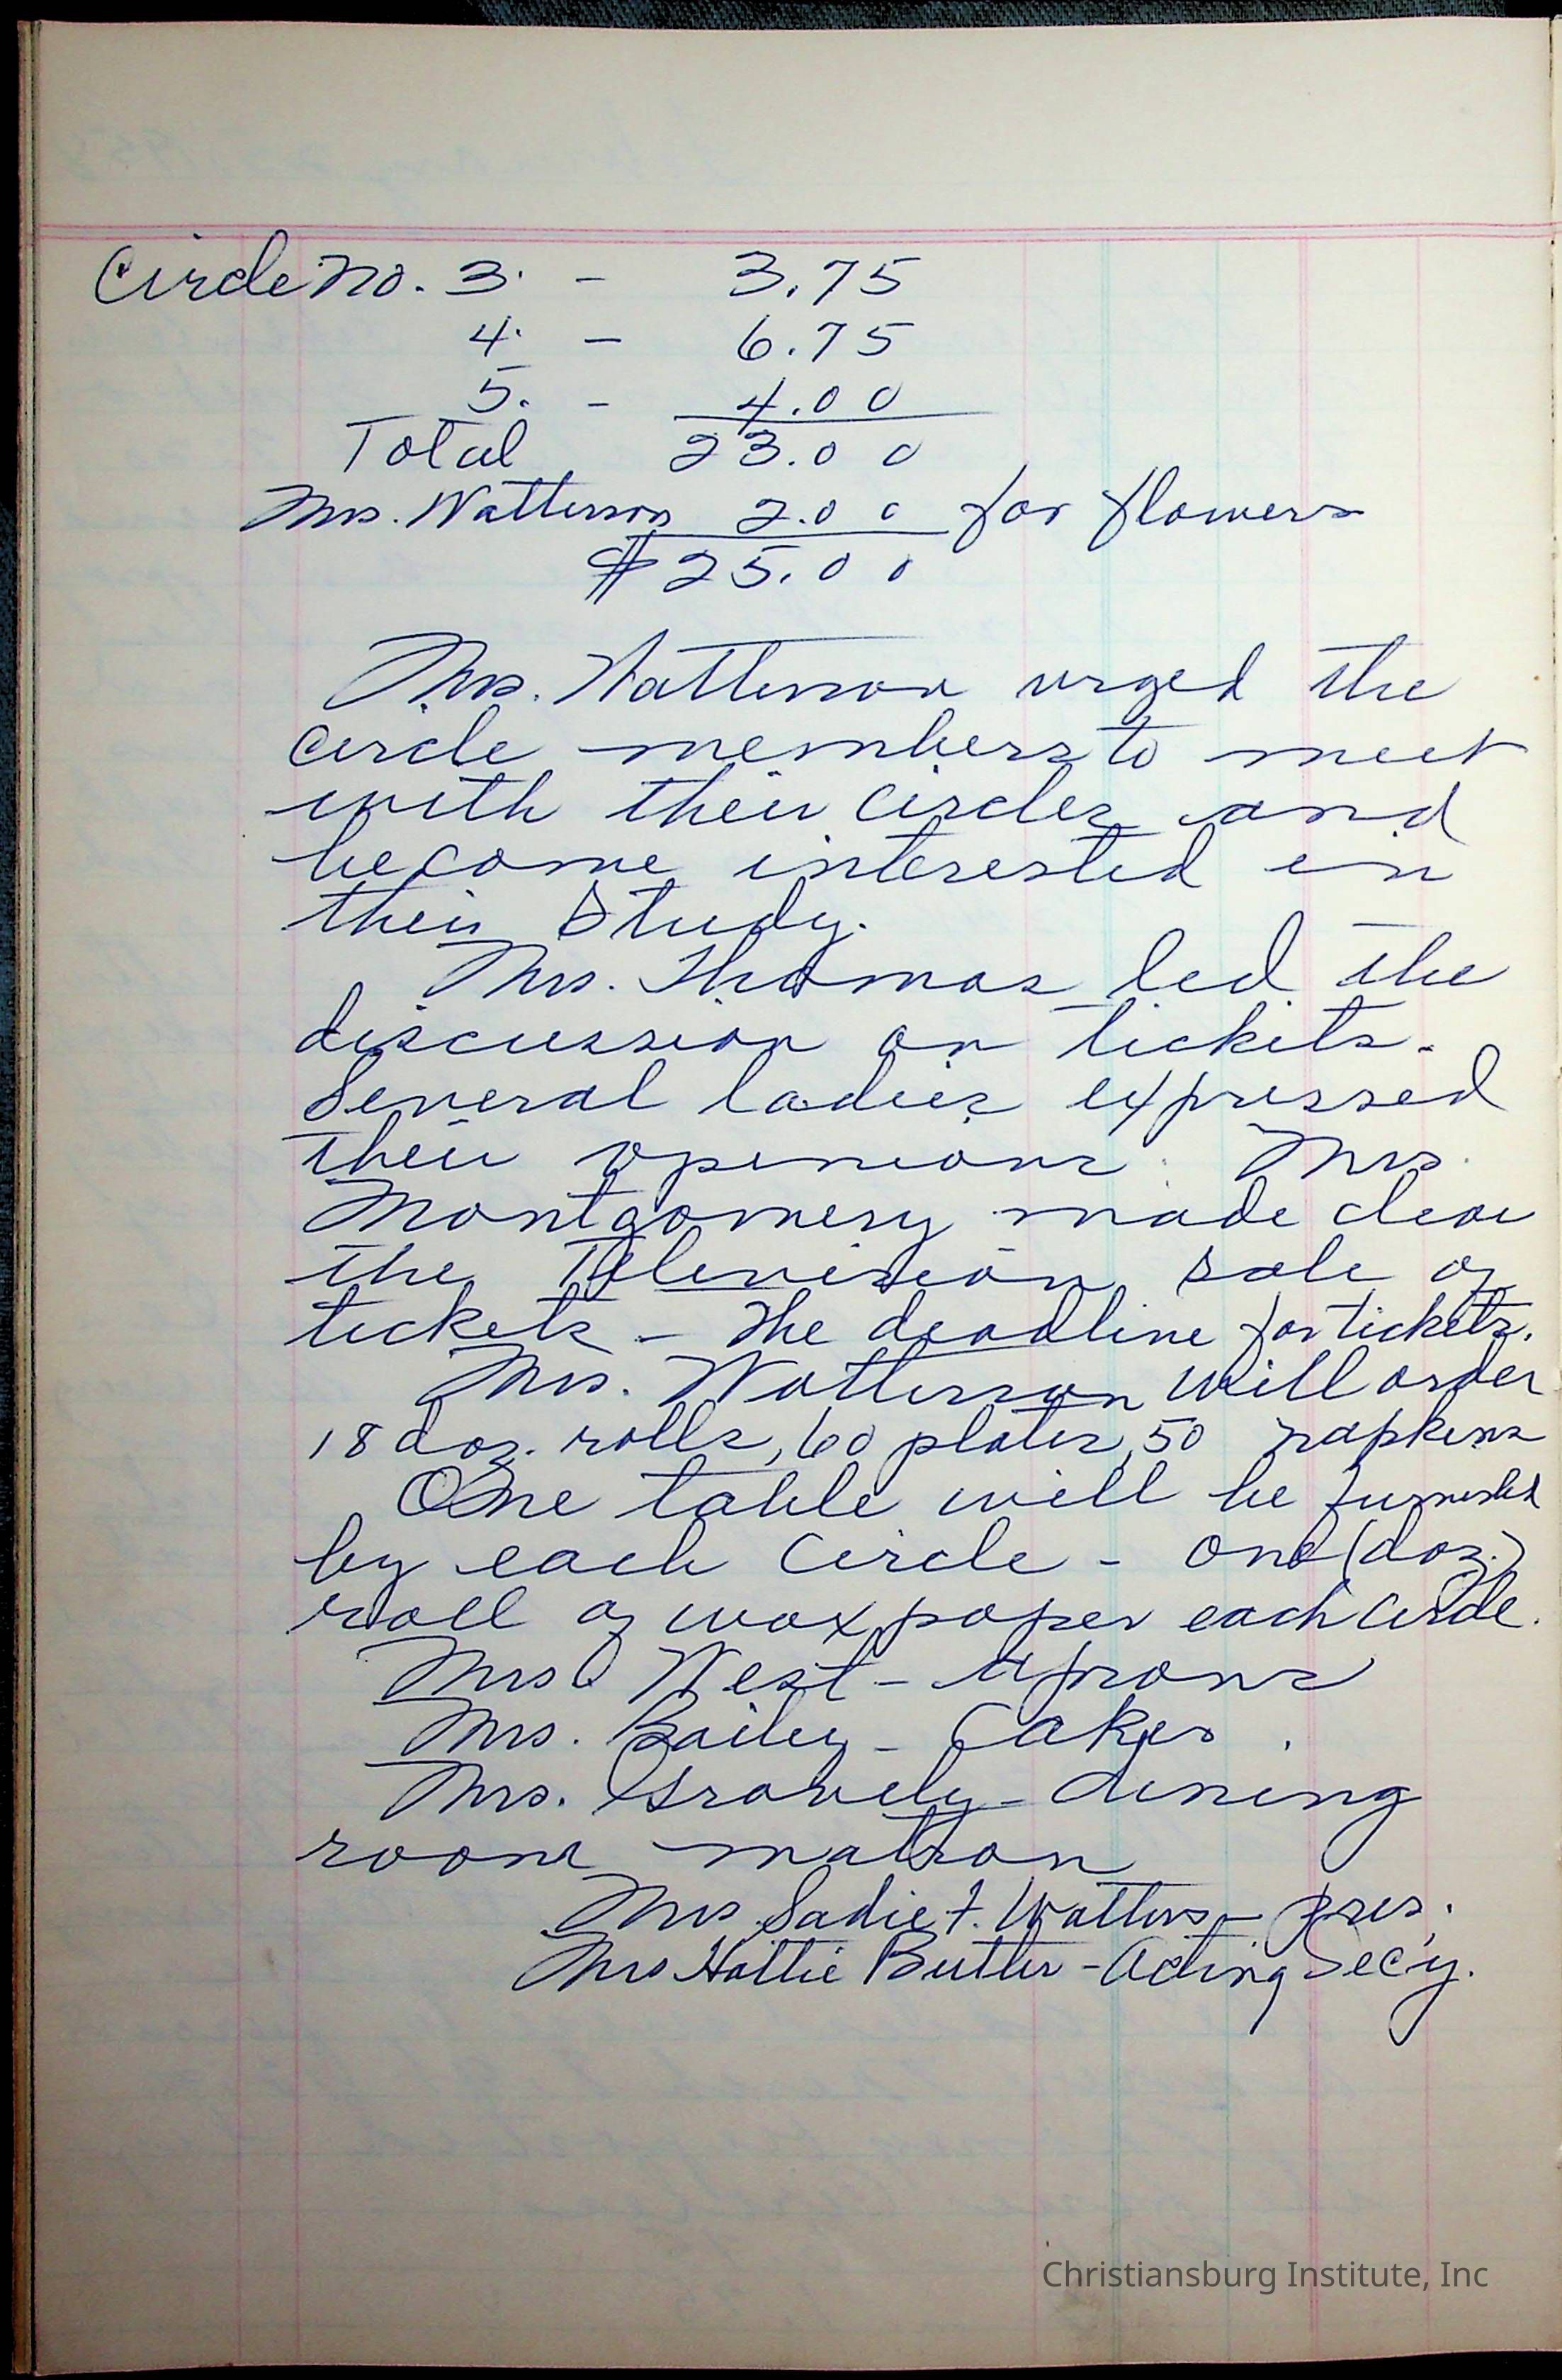 Circle No. 3. - 3.75
4. - 6.75
5. - 4.00
Total 23.00
Mrs. Watterson 2.00 for flowers
$25.00
Mrs. Watterson urged the
circle members to meet
with their circles and
become interested in
their Study.
Mrs. Thomas led the
discussion on tickets.
Several ladies expressed
their openions. Mrs.
Montgomery made clear
the Television sale of
tickets - The deadline for tickets.
Mrs. Watterson will order
18 doz. rolls, 60 plates, 50 napkins
One table will be furnished
by each Circle - one (doz.)
roll of wax paper each Circle.
Mrs. West - Aprons
Mrs. Bailey - Cakes.
Mrs. Gravely - dining
room matron
Mrs. Sadie F. - pres.
Mrs Hattie Butler - Acting Sec'y.
Christiansburg Institute, Inc